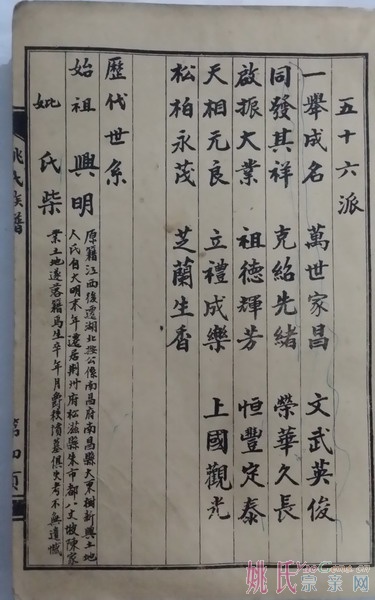 五十六派
一舉成名 萬世家昌 文武英俊
同發其祥 克紹先緒 榮華久長
啟振大業 祖德輝芳 恒豐定泰
天相元良 立禮成樂 上國觀光
松柏永茂 芝蘭生香
歷代世系
始祖興明
原籍江西後遷湖北公係南昌府南昌縣大栗樹新興土地
人氏自大明末年遷居荊州府松滋縣朱市都八文墩陳家
業土地遂落籍焉生卒年月爵秩墓俱失考不無遺憾
妣氏柴
姚氏族譜
第四頁
姚氏宗亲网